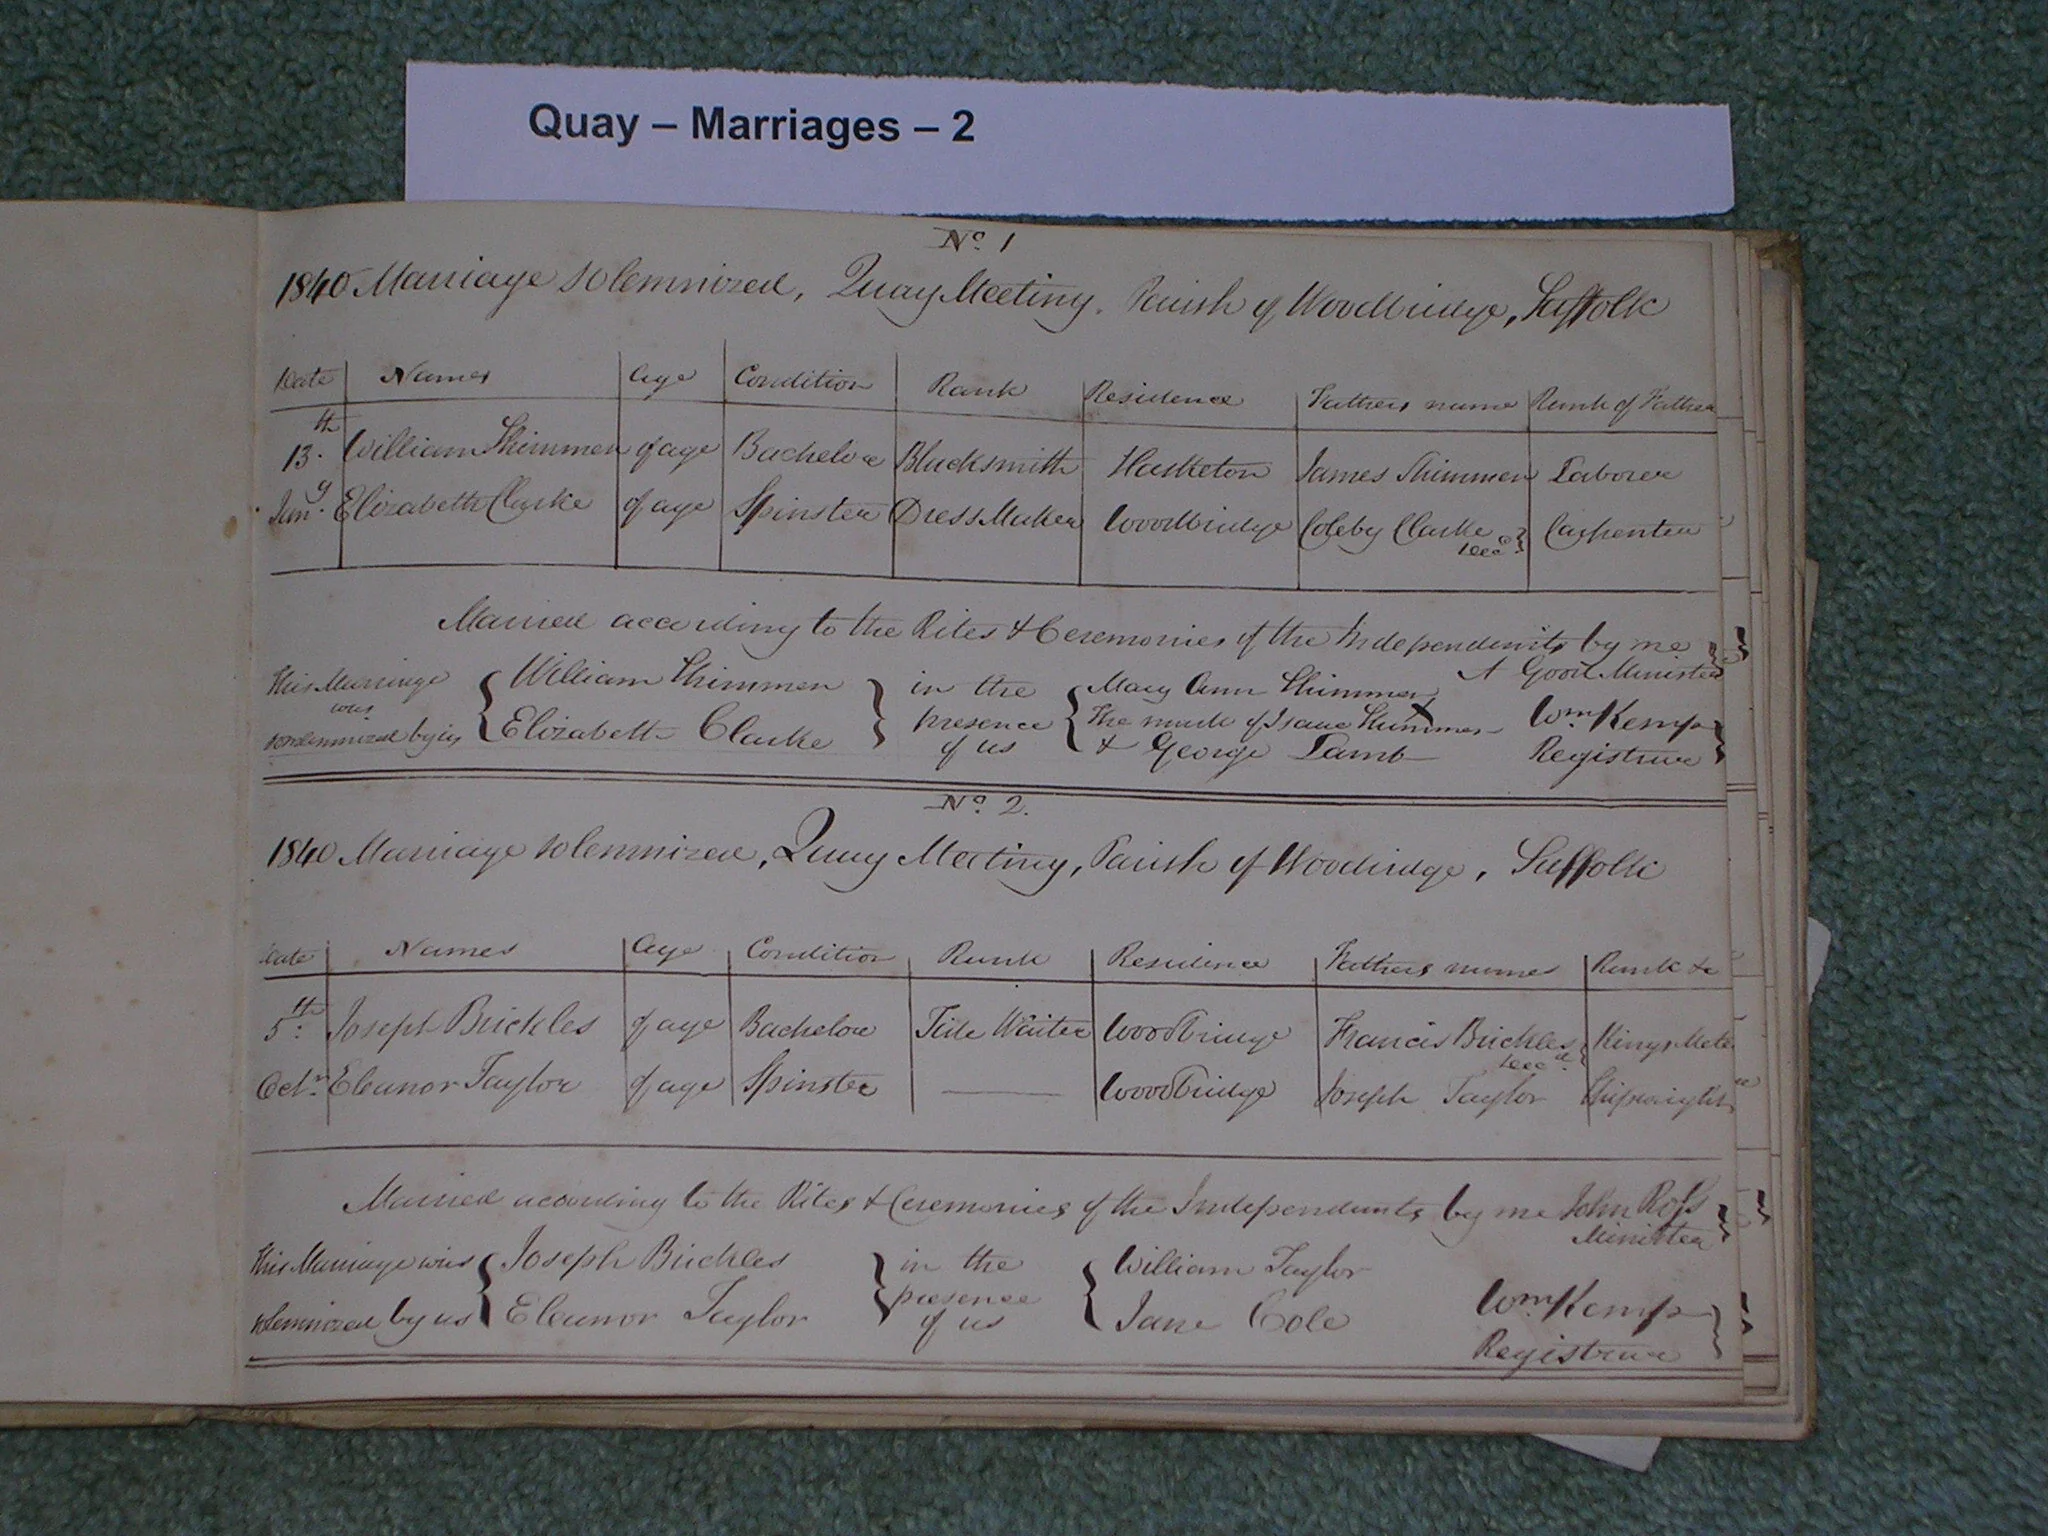 Quay – Marriages – 2
No. 1
1840 Marriage solemnized, Quay Meeting, Parish of Woodbridge, Suffolk
Date Names Age Condition Rank Residence Fathers name Rank of Father
13th William Shimmen of age Bachelor Blacksmith Hasketon James Shimmen Laborer
Jany. Elizabeth Clarke of age Spinster Dress Maker Woodbridge Coleby Clarke Decd. Carpenter
Married according to the Rites & Ceremonies of the Independents by me
A Good Minister
This Marriage was solemnized by us { William Shimmen Elizabeth Clarke } in the presence of us { Mary Ann Shimmen
The mark of Isaac Shimmen X
& George Lamb
Wm Kemp
Registrar
No. 2.
1840 Marriage solemnized, Quay Meeting, Parish of Woodbridge, Suffolk
Date Names Age Condition Rank Residence Fathers names Rank &c
5th: Joseph Buckles of age Bachelor Tide Waiter Woodbridge Francis Buckles Decd. Kings
Octr. Eleanor Taylor of age Spinster —— Woodbridge Joseph Taylor Shipwright
Married according to the Rites & Ceremonies of the Independents by me John Ross
Minister
This Marriage was solemnized by us { Joseph Buckles Eleanor Taylor } in the presence of us { William Taylor
Jane Cole
Wm Kemp
Registrar